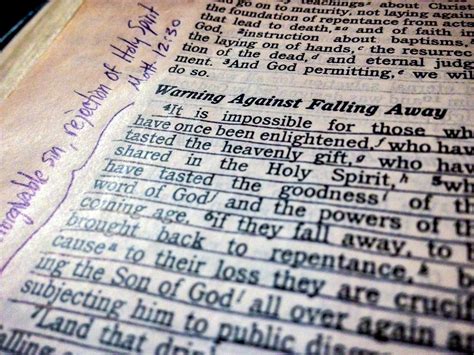 teachings about Chris
ad go on to maturity, not laying again
the foundation of repentance from acts
that lead to death, and of faith in
God, instruction about baptisms,
the laying on of hands, the resurrec
tion of the dead, and eternal judg
ment. ³And God permitting, we wil
do so.
Warning Against Falling Away
⁴It is impossible for those wh
have once been enlightened, who have
tasted the heavenly gift, who hav
shared in the Holy Spirit, ⁵wh
have tasted the goodness of th
word of God and the powers of th
coming age, ⁶if they fall away, to b
brought back to repentance, b
cause to their loss they are cruci
ing the Son of God all over again a
subjecting him to public disgr
⁷Land that drin
falling
sin, rejection of Holy Spirit
Matt. 12:30